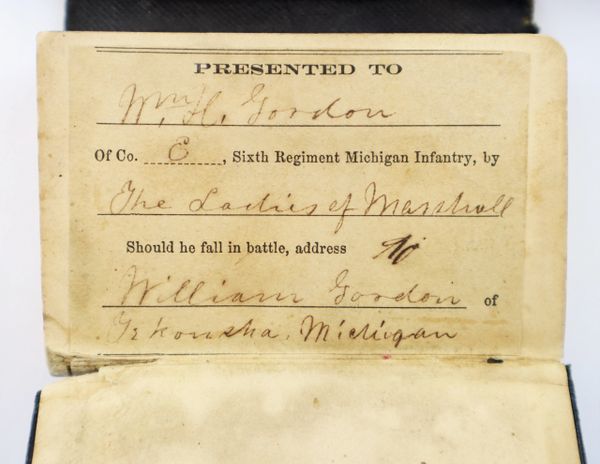 PRESENTED TO
Wm. H. Gordon
Of Co. C, Sixth Regiment Michigan Infantry, by
The Ladies of Marshall
Should he fall in battle, address to
William Gordon of
Tekonsha, Michigan